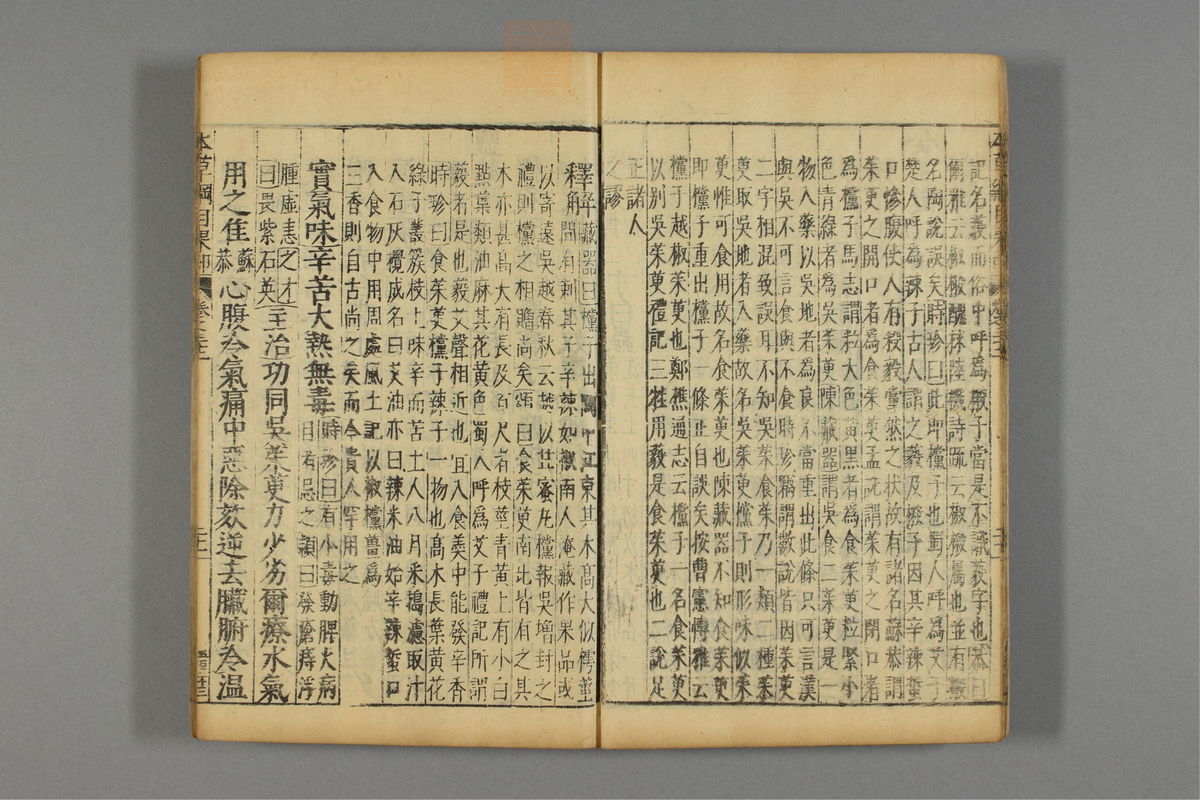 記名䕲而俗中呼爲樧子當是不識䕲字也恭曰
爾雅云椒樧醜梂陸機詩疏云椒樧屬也並有樧
名陶說誤矣時珍曰此即欓子也蜀人呼爲艾子
楚人呼爲辣子古人謂之藙及樧子因其辛辣蜇
口慘腹使人有殺毅黨然之狀故有諸名蘇恭謂
茱萸之開口者爲食茱萸孟詵謂茱萸之閉口者
爲欓子馬志謂粒大色黃黑者爲食茱萸粒緊小
色青綠者爲吳茱萸陳藏器謂吳食二茱萸是一
物入藥以吳地者爲良不當重出此條只可言漢
與吳不可言食與不食時珍竊謂數說皆因茱萸
二字相混致誤耳不知吳茱食茱乃一類二種茱
萸取吳地者入藥故名吳茱萸欓子則形味似茱
萸惟可食用故名食茱萸也陳藏器不知食茱萸
即欓子重出欓子一條正自誤矣按曹憲博雅云
欓子越椒茱萸也鄭樵通志云欓子一名食茱萸
以別吳茱萸禮記三牲用藙是食茱萸也二說足
正諸人
之謬
釋解藏器曰欓子出閩中江東其木高大似樗莖
間有刺其子辛辣如椒南人淹藏作果品或
以寄遠吳越春秋云越以甘蜜九欓報吳增封之
禮則欓之相贈尚矣頌曰食茱萸南北皆有之其
木亦甚高大有長及百尺者枝莖青黃上有小白
點葉類油麻其花黃色蜀人呼爲艾子禮記所謂
藙者是也藙艾聲相近也宜入食羹中能發辛香
時珍曰食茱萸欓子辣子一物也高木長葉黃花
綠子叢簇枝上味辛而苦土人八月采搗濾取汁
入石灰攪成名曰艾油亦曰辣米油始辛辣蜇口
入食物中用周處風土記以椒欓薑爲
三香則自古尚之矣而今貴人罕用之
實氣味辛苦大熱無毒時珍曰有小毒動脾火病
目者忌之穎曰發瘡痔浮
腫虛恚之才
曰畏紫石英主治功同吳茱萸力少劣爾療水氣
用之佳蘇恭心腹冷氣痛中惡除欬逆去臟腑冷温